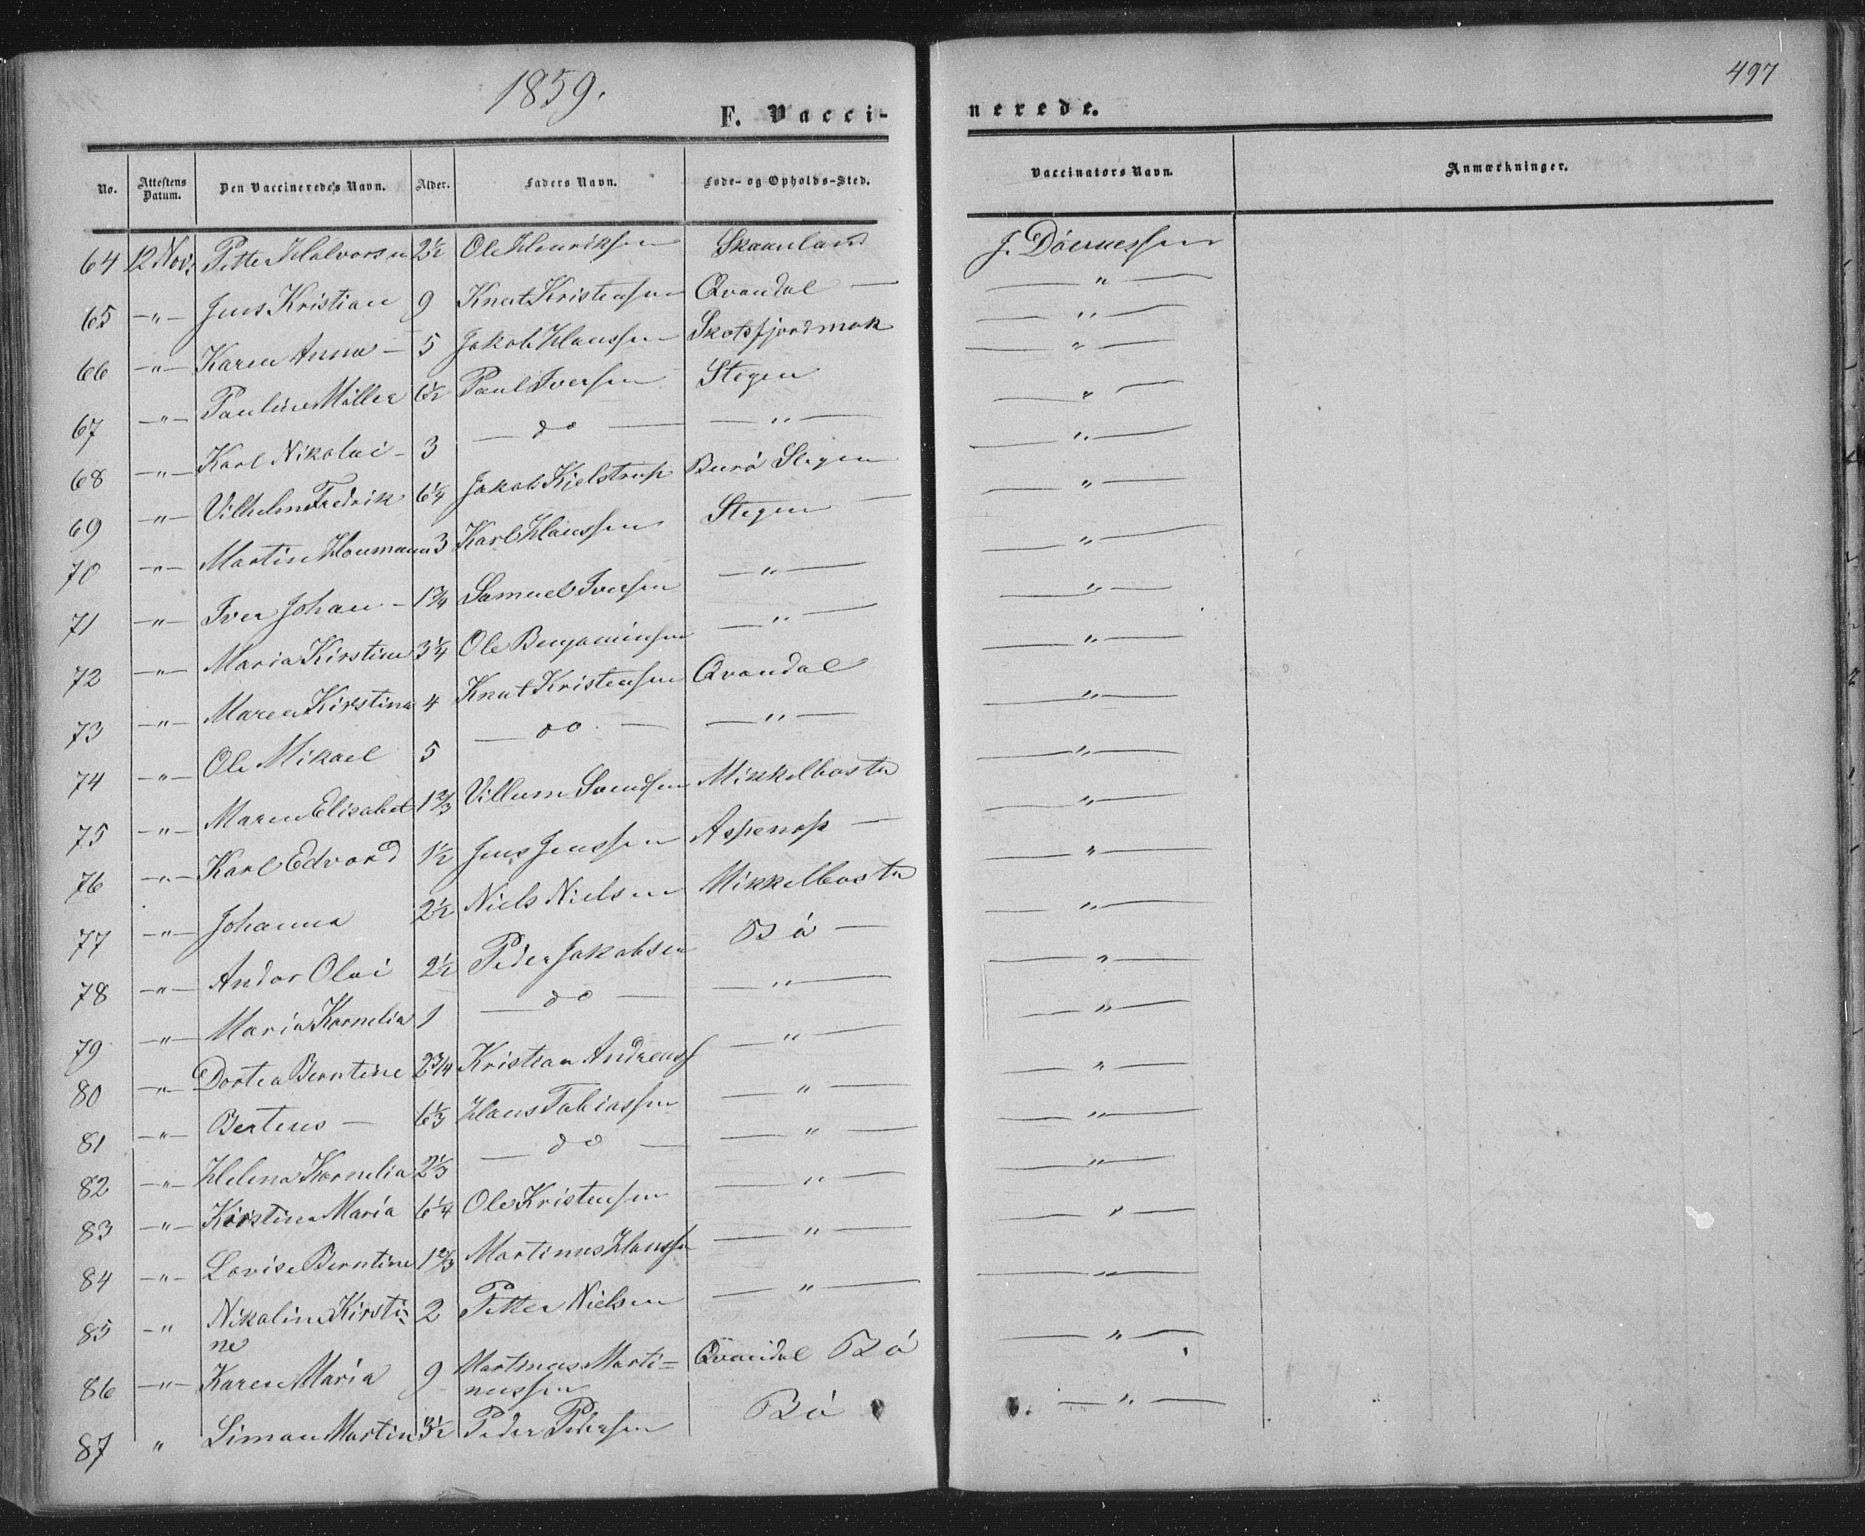 1859.
497
F. Vacci-
nerede.
No. Attestens Datum. Den Vaccineredes Navn. Alder. Faders Navn. Føde- og Opholds-Sted. Vaccinators Navn. Anmærkninger.
64 12 Nov. Petter Halvorsen 2½ Ole Henriksen Skaanland J. Döernessen
65 -"- Jens Kristian 9 Knut Kristensen Qvandal — — " —
66 -"- Karen Anna - 5 Jakob Hanssen Skotsfjordmok — " —
67 -"- Pauline Möller 6½ Paul Iversen Stegen — " —
68 -"- Karl Nikolai - 3 — do — — " — — " —
69 -"- Vilhelm Fredrik 6¼ Jakob Kjelstrup Burö Stegen — " —
70 -"- Martin Haumann 3 Karl Hanssen Stegen — " —
71 -"- Iver Johan - 1¾ Samuel Iversen — " — — " —
72 -"- Maria Kirstine 3¼ Ole Benjaminsen — " — — " —
73 -"- Maren Kirstina 4 Knut Kristensen Qvandal — " —
74 -"- Ole Mikael 5 — do. — — " — — " —
75 -"- Maren Elisabet 1⅔ Villum Svendsen Mikkelbostn — " —
76 -"- Karl Edvard 1½ Jens Jenssen Aspenes — — " —
77 -"- Johanna 2½ Niels Nielsen Mikkelbostn — " —
78 -"- Andor Olai 2½ Peder Jakobsen Bö — — " —
79 -"- Maria Kornelia 1 — do — — " — — " —
80 -"- Dortea Berntine 2¾ Kristian Andreass — " — — " —
81 -"- Berteus — 6⅓ Hans Tobiassen — " — — " —
82 -"- Helena Kornelia 2⅓ — do — — " — — " —
83 -"- Kirstina Maria 6¼ Ole Kristensen — " — — " —
84 -"- Lovise Berntine 1⅔ Martinus Hanssn — " — — " —
85 -" Nikoline Kirsti- 2 Petter Nielsen — " — — " —
ne
86 -"- Karen Maria 9 Martinus Marti= Qvandal Bö
nussen
87 " Simon Martin 3½ Peder Pedersen Bö — " —